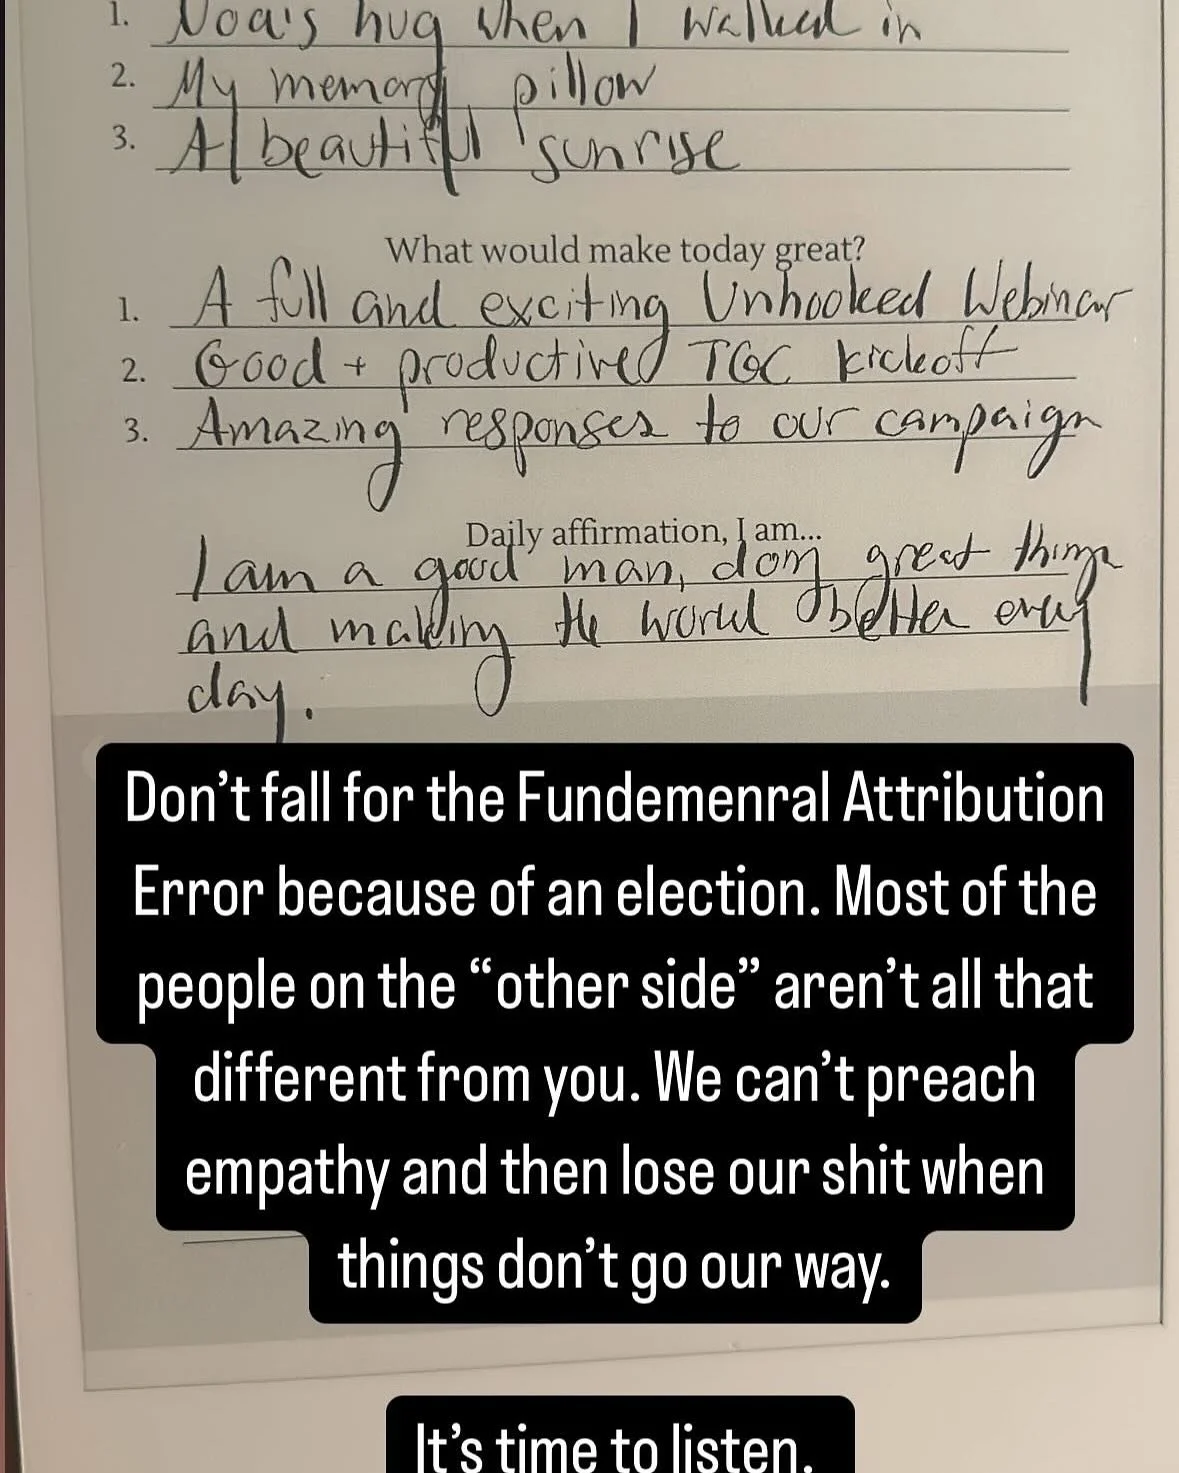 1. Noa's hug when I walked in
2. My memory pillow
3. A beautiful sunrise
What would make today great?
1. A full and exciting Unhooked Webinar
2. Good + productive TGC kickoff
3. Amazing responses to our campaign
Daily affirmation, I am...
I am a good man, doing great things
and making the world better every
day.
Don’t fall for the Fundemenral Attribution
Error because of an election. Most of the
people on the “other side” aren’t all that
different from you. We can’t preach
empathy and then lose our shit when
things don’t go our way.
It’s time to listen.